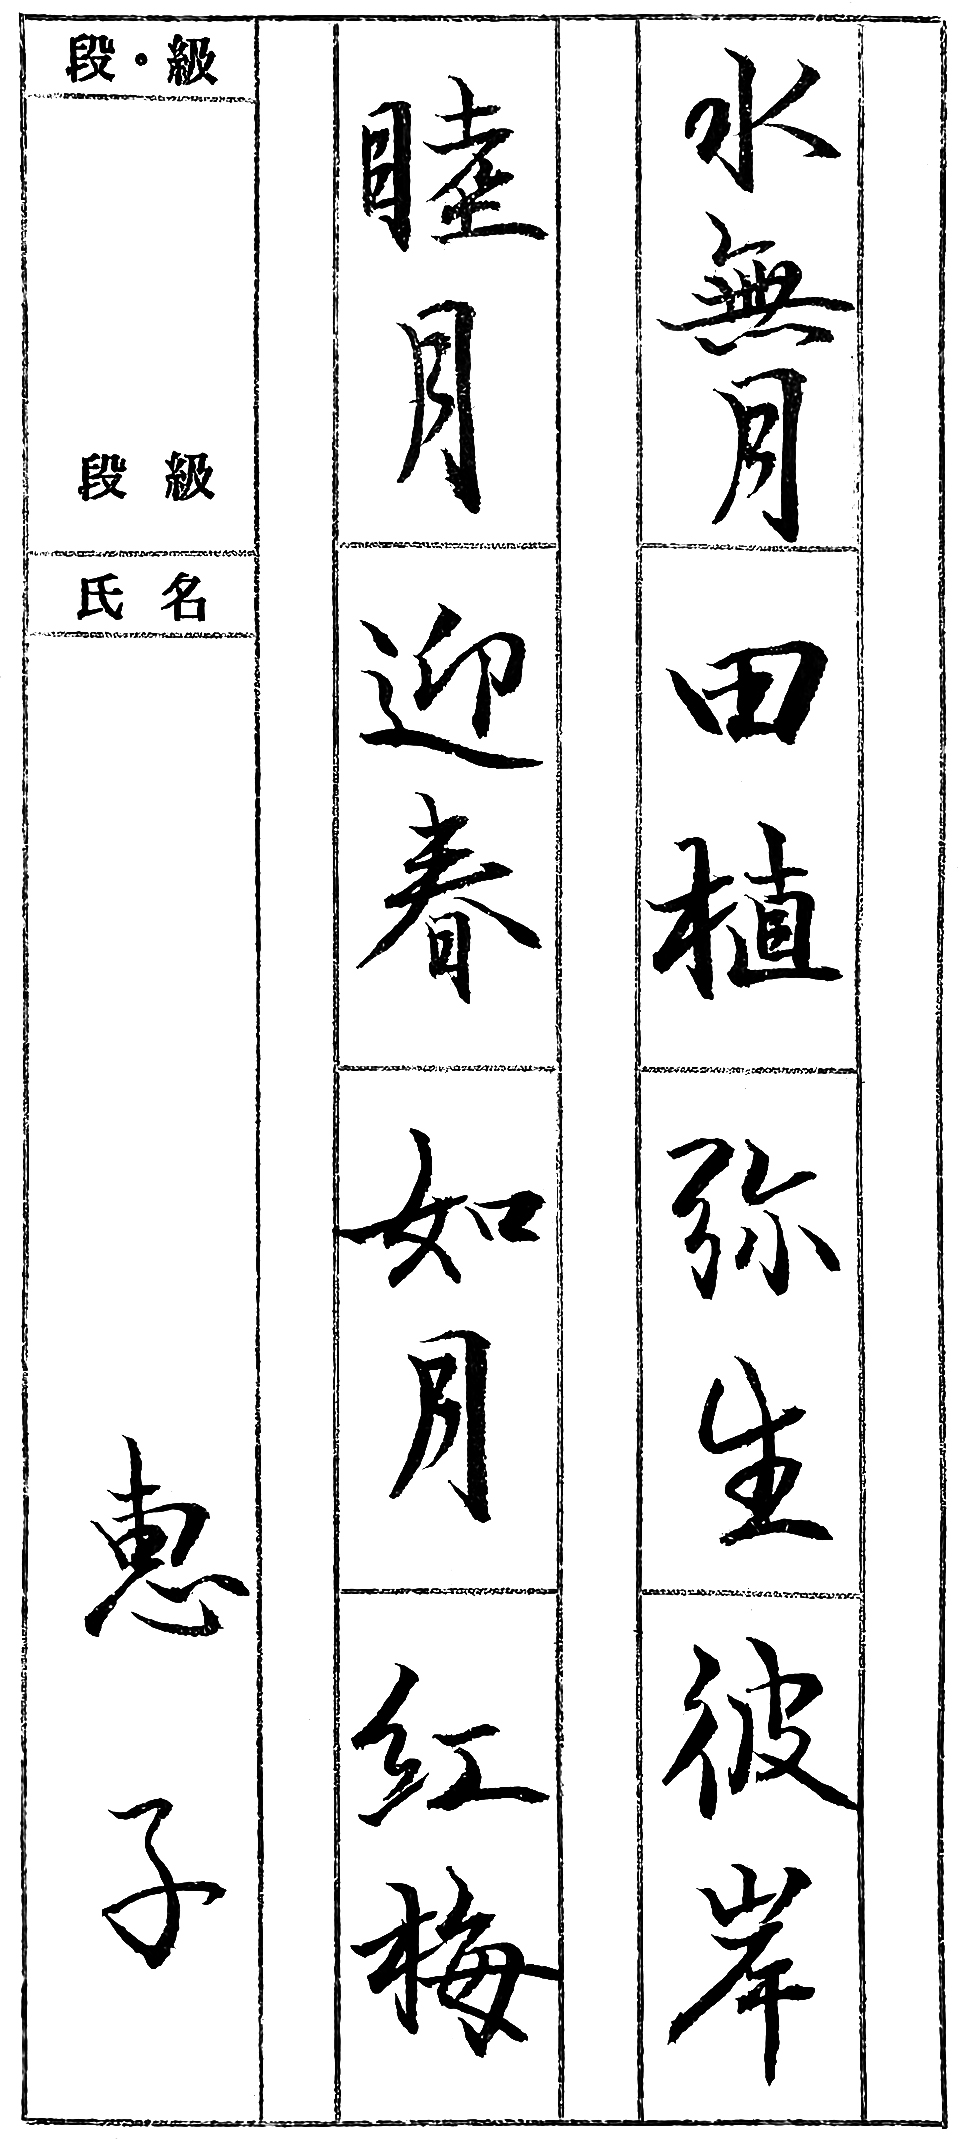 水無月田植弥生彼岸
睦月迎春如月紅梅
段・級
段級
氏名
恵子